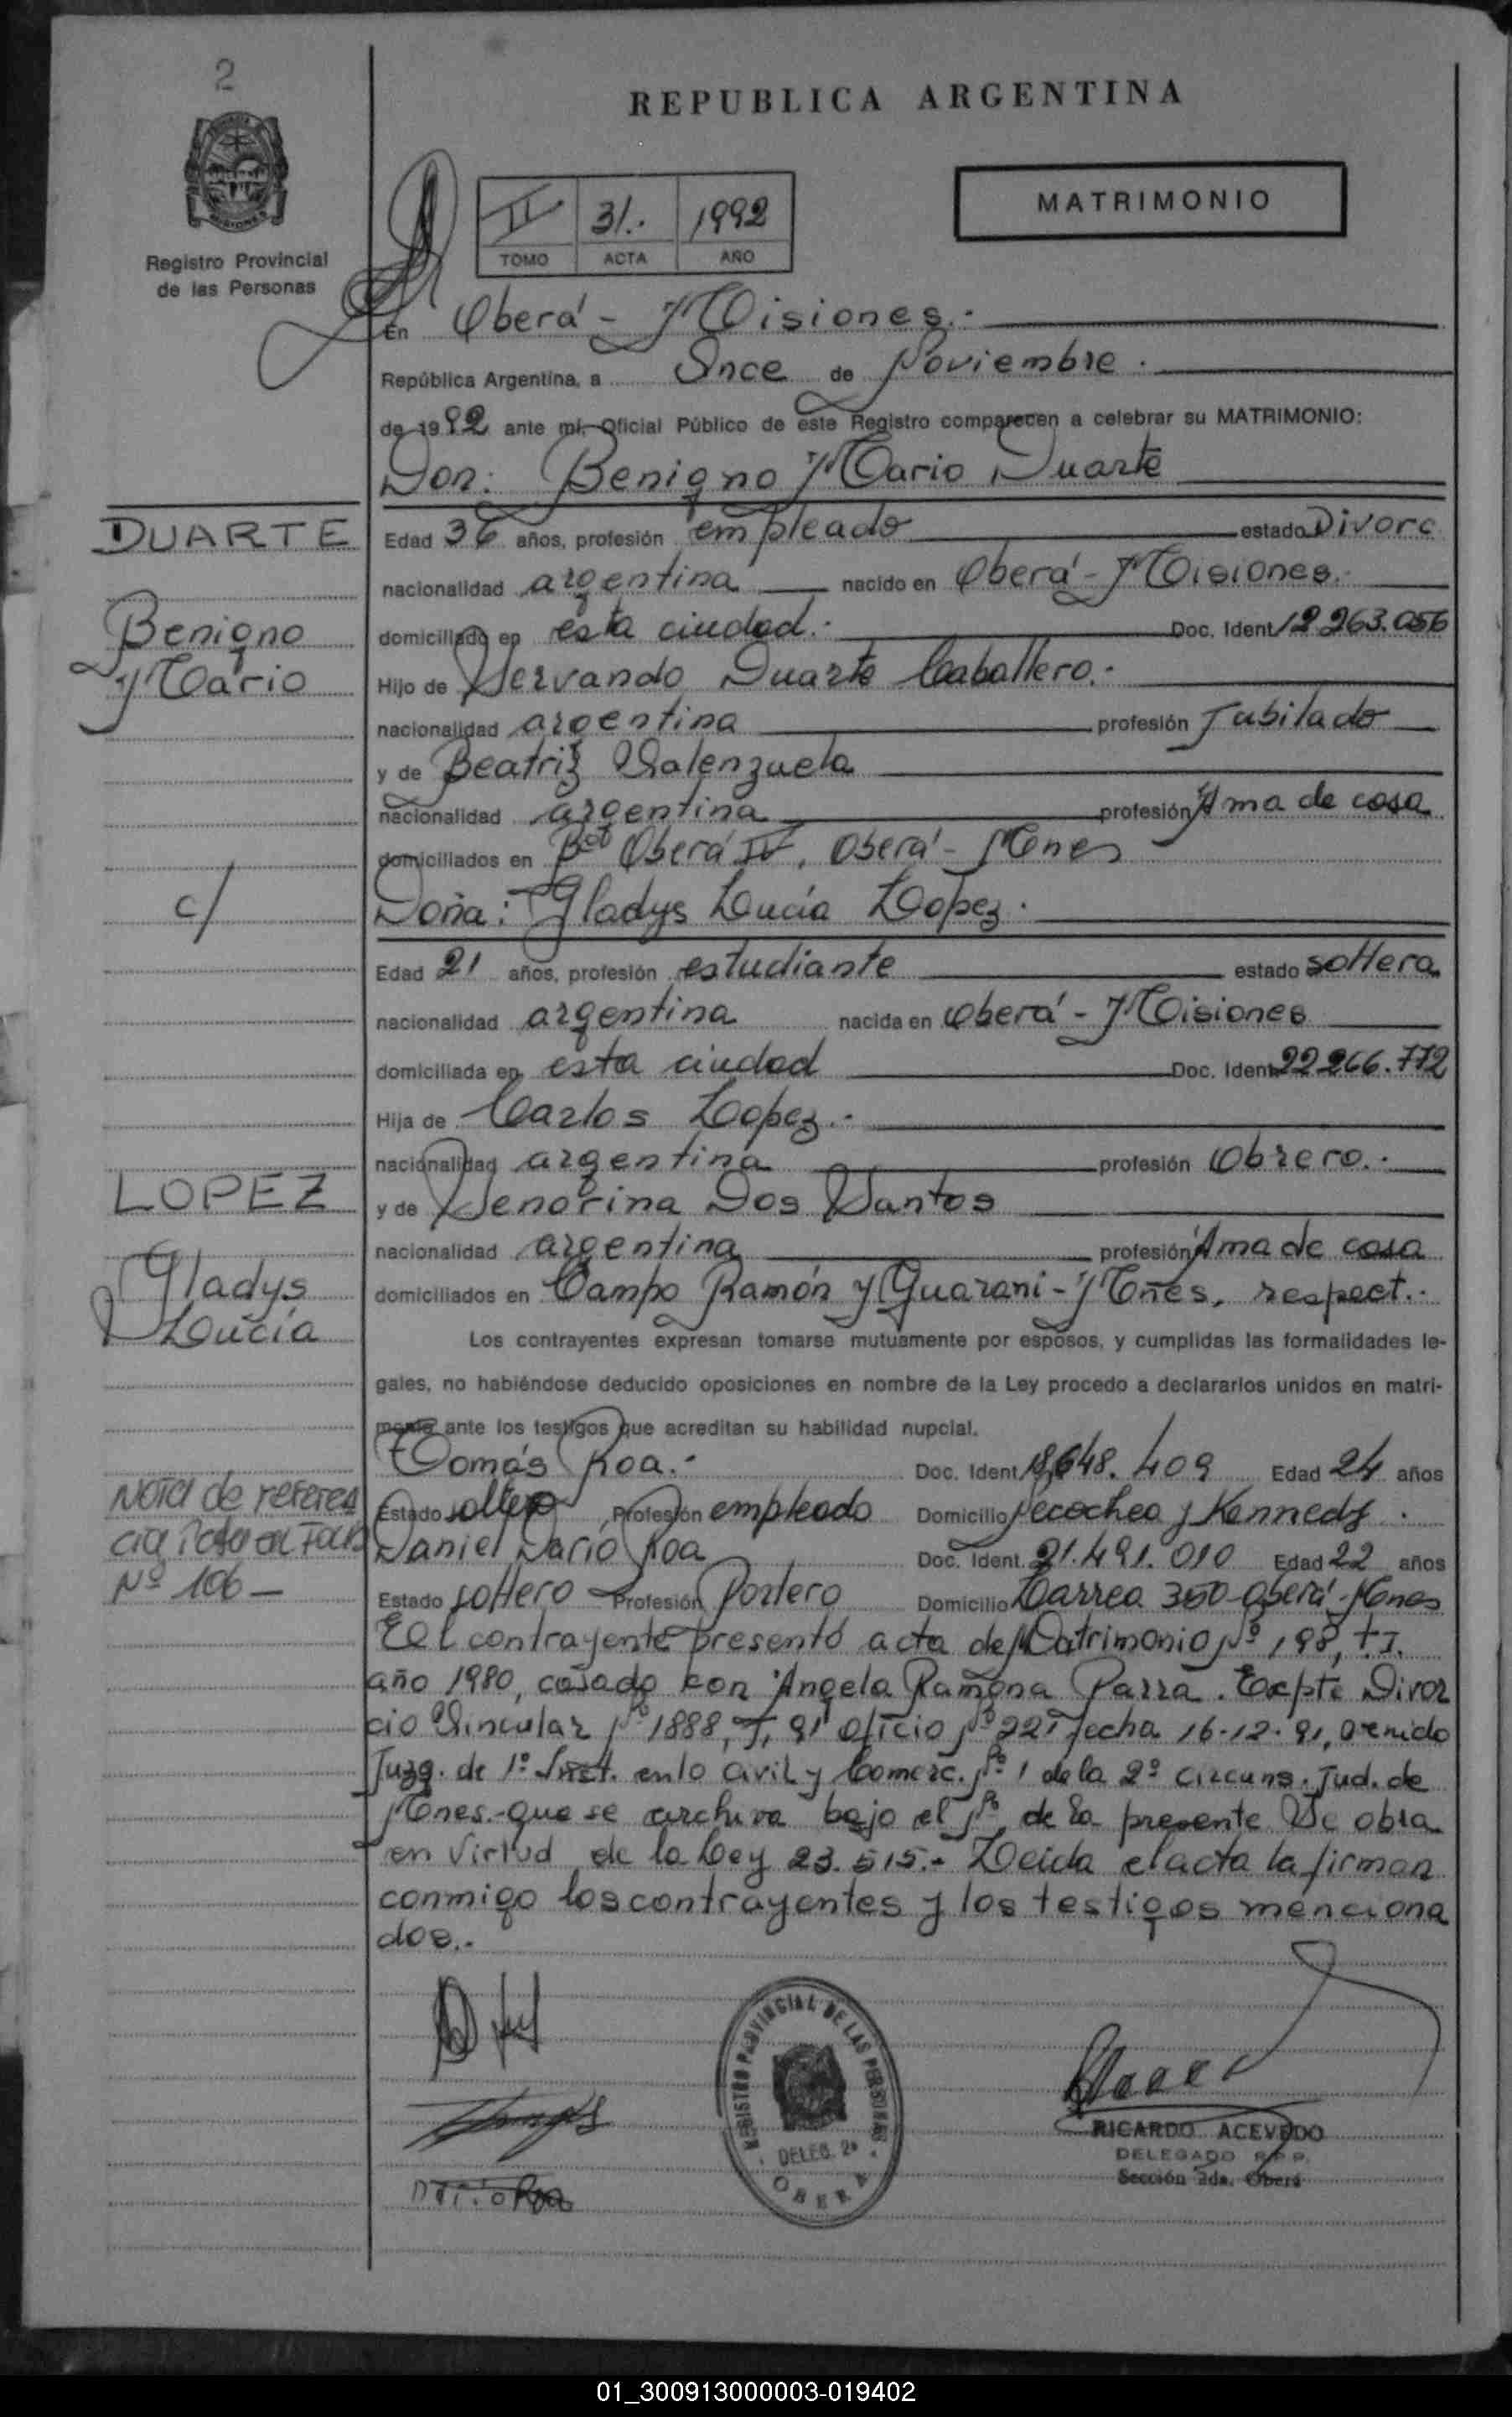 2
REPUBLICA ARGENTINA
Registro Provincial
de las Personas
II 31.- 1992
TOMO ACTA AÑO
MATRIMONIO
En Oberá - Misiones.-
República Argentina, a Once de Noviembre.
de 1992 ante mí, Oficial Público de este Registro comparecen a celebrar su MATRIMONIO:
Don: Benigno Mario Duarte
DUARTE
Benigno
Mario
Edad 36 años, profesión empleado estado Divorc
nacionalidad argentina nacido en Oberá - Misiones.-
domiciliado en esta ciudad.- Doc. Ident 12.263.056
Hijo de Servando Duarte Caballero.-
nacionalidad argentina profesión Jubilado
y de Beatriz Valenzuela
nacionalidad argentina profesión Ama de casa
domiciliados en Bº Oberá IV, Oberá - Mnes
c/
Doña: Gladys Lucía Lopez.
Edad 21 años, profesión estudiante estado soltera
nacionalidad argentina nacida en Oberá - Misiones
domiciliada en esta ciudad Doc. Ident 22.266.772
Hija de Carlos Lopez.-
nacionalidad argentina profesión Obrero.-
LOPEZ
Gladys
Lucía
y de Senorina Dos Santos
nacionalidad argentina profesión Ama de casa
domiciliados en Campo Ramón y Guarani - Mnes, respect.-
Los contrayentes expresan tomarse mutuamente por esposos, y cumplidas las formalidades le-
gales, no habiéndose deducido oposiciones en nombre de la Ley procedo a declararlos unidos en matri-
monio ante los testigos que acreditan su habilidad nupcial.
Tomás Roa.- Doc. Ident 18.648.409 Edad 24 años
Estado soltero Profesión empleado Domicilio Necochea y Kennedy.
Daniel Darío Roa Doc. Ident. 21.491.010 Edad 22 años
Estado soltero Profesión Portero Domicilio Larrea 350 - Oberá - Mnes
Nota de referen
cia
Nº 106 -
El contrayente presentó acta de Matrimonio Nº 198, t I.
año 1980, casado con Angela Ramona Parra. Expte Divor
cio Vincular Nº 1888, 91 oficio Nº 221 fecha 16-12-91, venido
Juzg. de 1º Inst. en lo civil y Comerc. Nº 1 de la 2º circuns. Jud. de
Mnes.- que se archiva bajo el Nº de la presente Se obra
en virtud de la Ley 23.515.- Leida el acta la firman
conmigo los contrayentes y los testigos menciona
dos.-
REGISTRO PROVINCIAL DE LAS PERSONAS
DELEG. 2ª
OBERA
RICARDO ACEVEDO
DELEGADO R.P.P.
Sección 2da. Oberá
Darío Roa
01_300913000003-019402